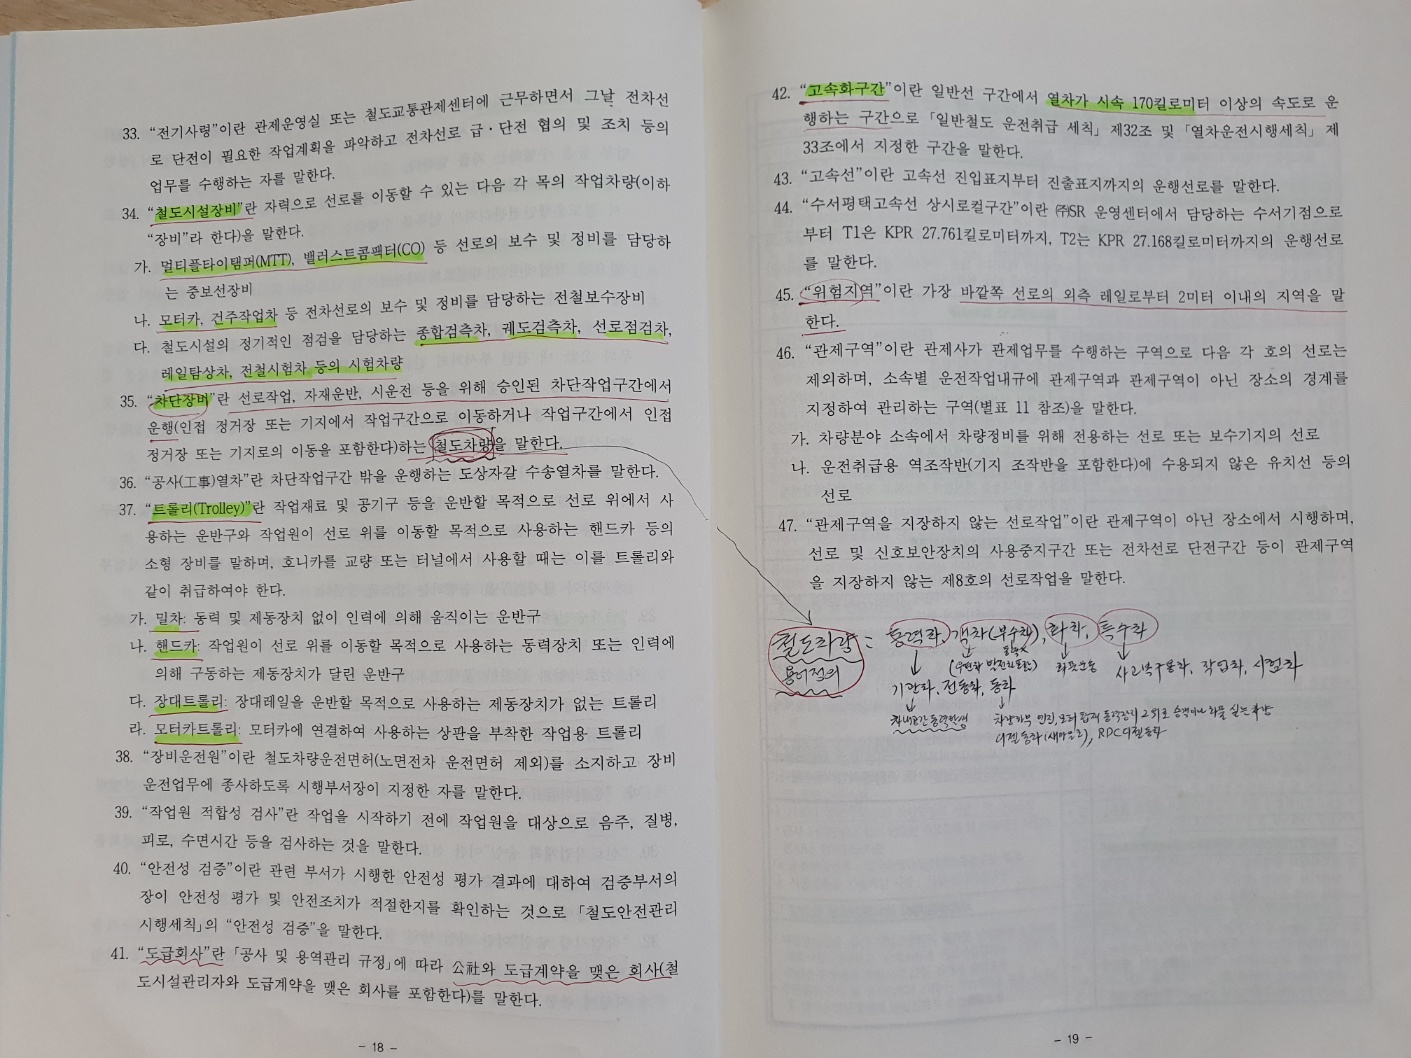 33. “전기사령”이란 관제운영실 또는 철도교통관제센터에 근무하면서 그날 전차선
로 단전이 필요한 작업계획을 파악하고 전차선로 급·단전 협의 및 조치 등의
업무를 수행하는 자를 말한다.
34. “철도시설장비”란 자력으로 선로를 이동할 수 있는 다음 각 목의 작업차량(이하
“장비”라 한다)을 말한다.
가. 멀티플타이탬퍼(MTT), 밸러스트콤팩터(CO) 등 선로의 보수 및 정비를 담당하
는 중보선장비
나. 모터카, 건주작업차 등 전차선로의 보수 및 정비를 담당하는 전철보수장비
다. 철도시설의 정기적인 점검을 담당하는 종합검측차, 궤도검측차, 선로점검차,
레일탐상차, 전철시험차 등의 시험차량
35. “차단장비”란 선로작업, 자재운반, 시운전 등을 위해 승인된 차단작업구간에서
운행(인접 정거장 또는 기지에서 작업구간으로 이동하거나 작업구간에서 인접
정거장 또는 기지로의 이동을 포함한다)하는 철도차량을 말한다.
36. “공사(工事)열차”란 차단작업구간 밖을 운행하는 도상자갈 수송열차를 말한다.
37. “트롤리(Trolley)”란 작업재료 및 공기구 등을 운반할 목적으로 선로 위에서 사
용하는 운반구와 작업원이 선로 위를 이동할 목적으로 사용하는 핸드카 등의
소형 장비를 말하며, 호니카를 교량 또는 터널에서 사용할 때는 이를 트롤리와
같이 취급하여야 한다.
가. 밀차: 동력 및 제동장치 없이 인력에 의해 움직이는 운반구
나. 핸드카: 작업원이 선로 위를 이동할 목적으로 사용하는 동력장치 또는 인력에
의해 구동하는 제동장치가 달린 운반구
다. 장대트롤리: 장대레일을 운반할 목적으로 사용하는 제동장치가 없는 트롤리
라. 모터카트롤리: 모터카에 연결하여 사용하는 상판을 부착한 작업용 트롤리
38. “장비운전원”이란 철도차량운전면허(노면전차 운전면허 제외)를 소지하고 장비
운전업무에 종사하도록 시행부서장이 지정한 자를 말한다.
39. “작업원 적합성 검사”란 작업을 시작하기 전에 작업원을 대상으로 음주, 질병,
피로, 수면시간 등을 검사하는 것을 말한다.
40. “안전성 검증”이란 관련 부서가 시행한 안전성 평가 결과에 대하여 검증부서의
장이 안전성 평가 및 안전조치가 적절한지를 확인하는 것으로 「철도안전관리
시행세칙」의 “안전성 검증”을 말한다.
41. “도급회사”란 「공사 및 용역관리 규정」에 따라 公社와 도급계약을 맺은 회사(철
도시설관리자와 도급계약을 맺은 회사를 포함한다)를 말한다.
- 18 -
42. “고속화구간”이란 일반선 구간에서 열차가 시속 170킬로미터 이상의 속도로 운
행하는 구간으로 「일반철도 운전취급 세칙」 제32조 및 「열차운전시행세칙」 제
33조에서 지정한 구간을 말한다.
43. “고속선”이란 고속선 진입표지부터 진출표지까지의 운행선로를 말한다.
44. “수서평택고속선 상시로컬구간”이란 ㈜SR 운영센터에서 담당하는 수서기점으로
부터 T1은 KPR 27.761킬로미터까지, T2는 KPR 27.168킬로미터까지의 운행선로
를 말한다.
45. “위험지역”이란 가장 바깥쪽 선로의 외측 레일로부터 2미터 이내의 지역을 말
한다.
46. “관제구역”이란 관제사가 관제업무를 수행하는 구역으로 다음 각 호의 선로는
제외하며, 소속별 운전작업내규에 관제구역과 관제구역이 아닌 장소의 경계를
지정하여 관리하는 구역(별표 11 참조)을 말한다.
가. 차량분야 소속에서 차량정비를 위해 전용하는 선로 또는 보수기지의 선로
나. 운전취급용 역조작반(기지 조작반을 포함한다)에 수용되지 않은 유치선 등의
선로
47. “관제구역을 지장하지 않는 선로작업”이란 관제구역이 아닌 장소에서 시행하며,
선로 및 신호보안장치의 사용중지구간 또는 전차선로 단전구간 등이 관제구역
을 지장하지 않는 제8호의 선로작업을 말한다.
철도차량 = 동력차, 객차(부수차), 화차, 특수차
용어정의
화물수송 사고복구용차, 작업차, 시험차
기관차, 전동차, 동차
디젤동차(새마을), RDC디젤동차
- 19 -